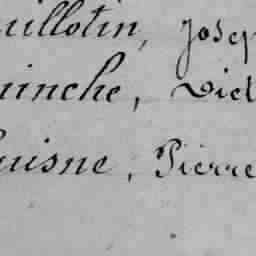 uillotin, Josep
uinche, Vict
uisne, Pierre